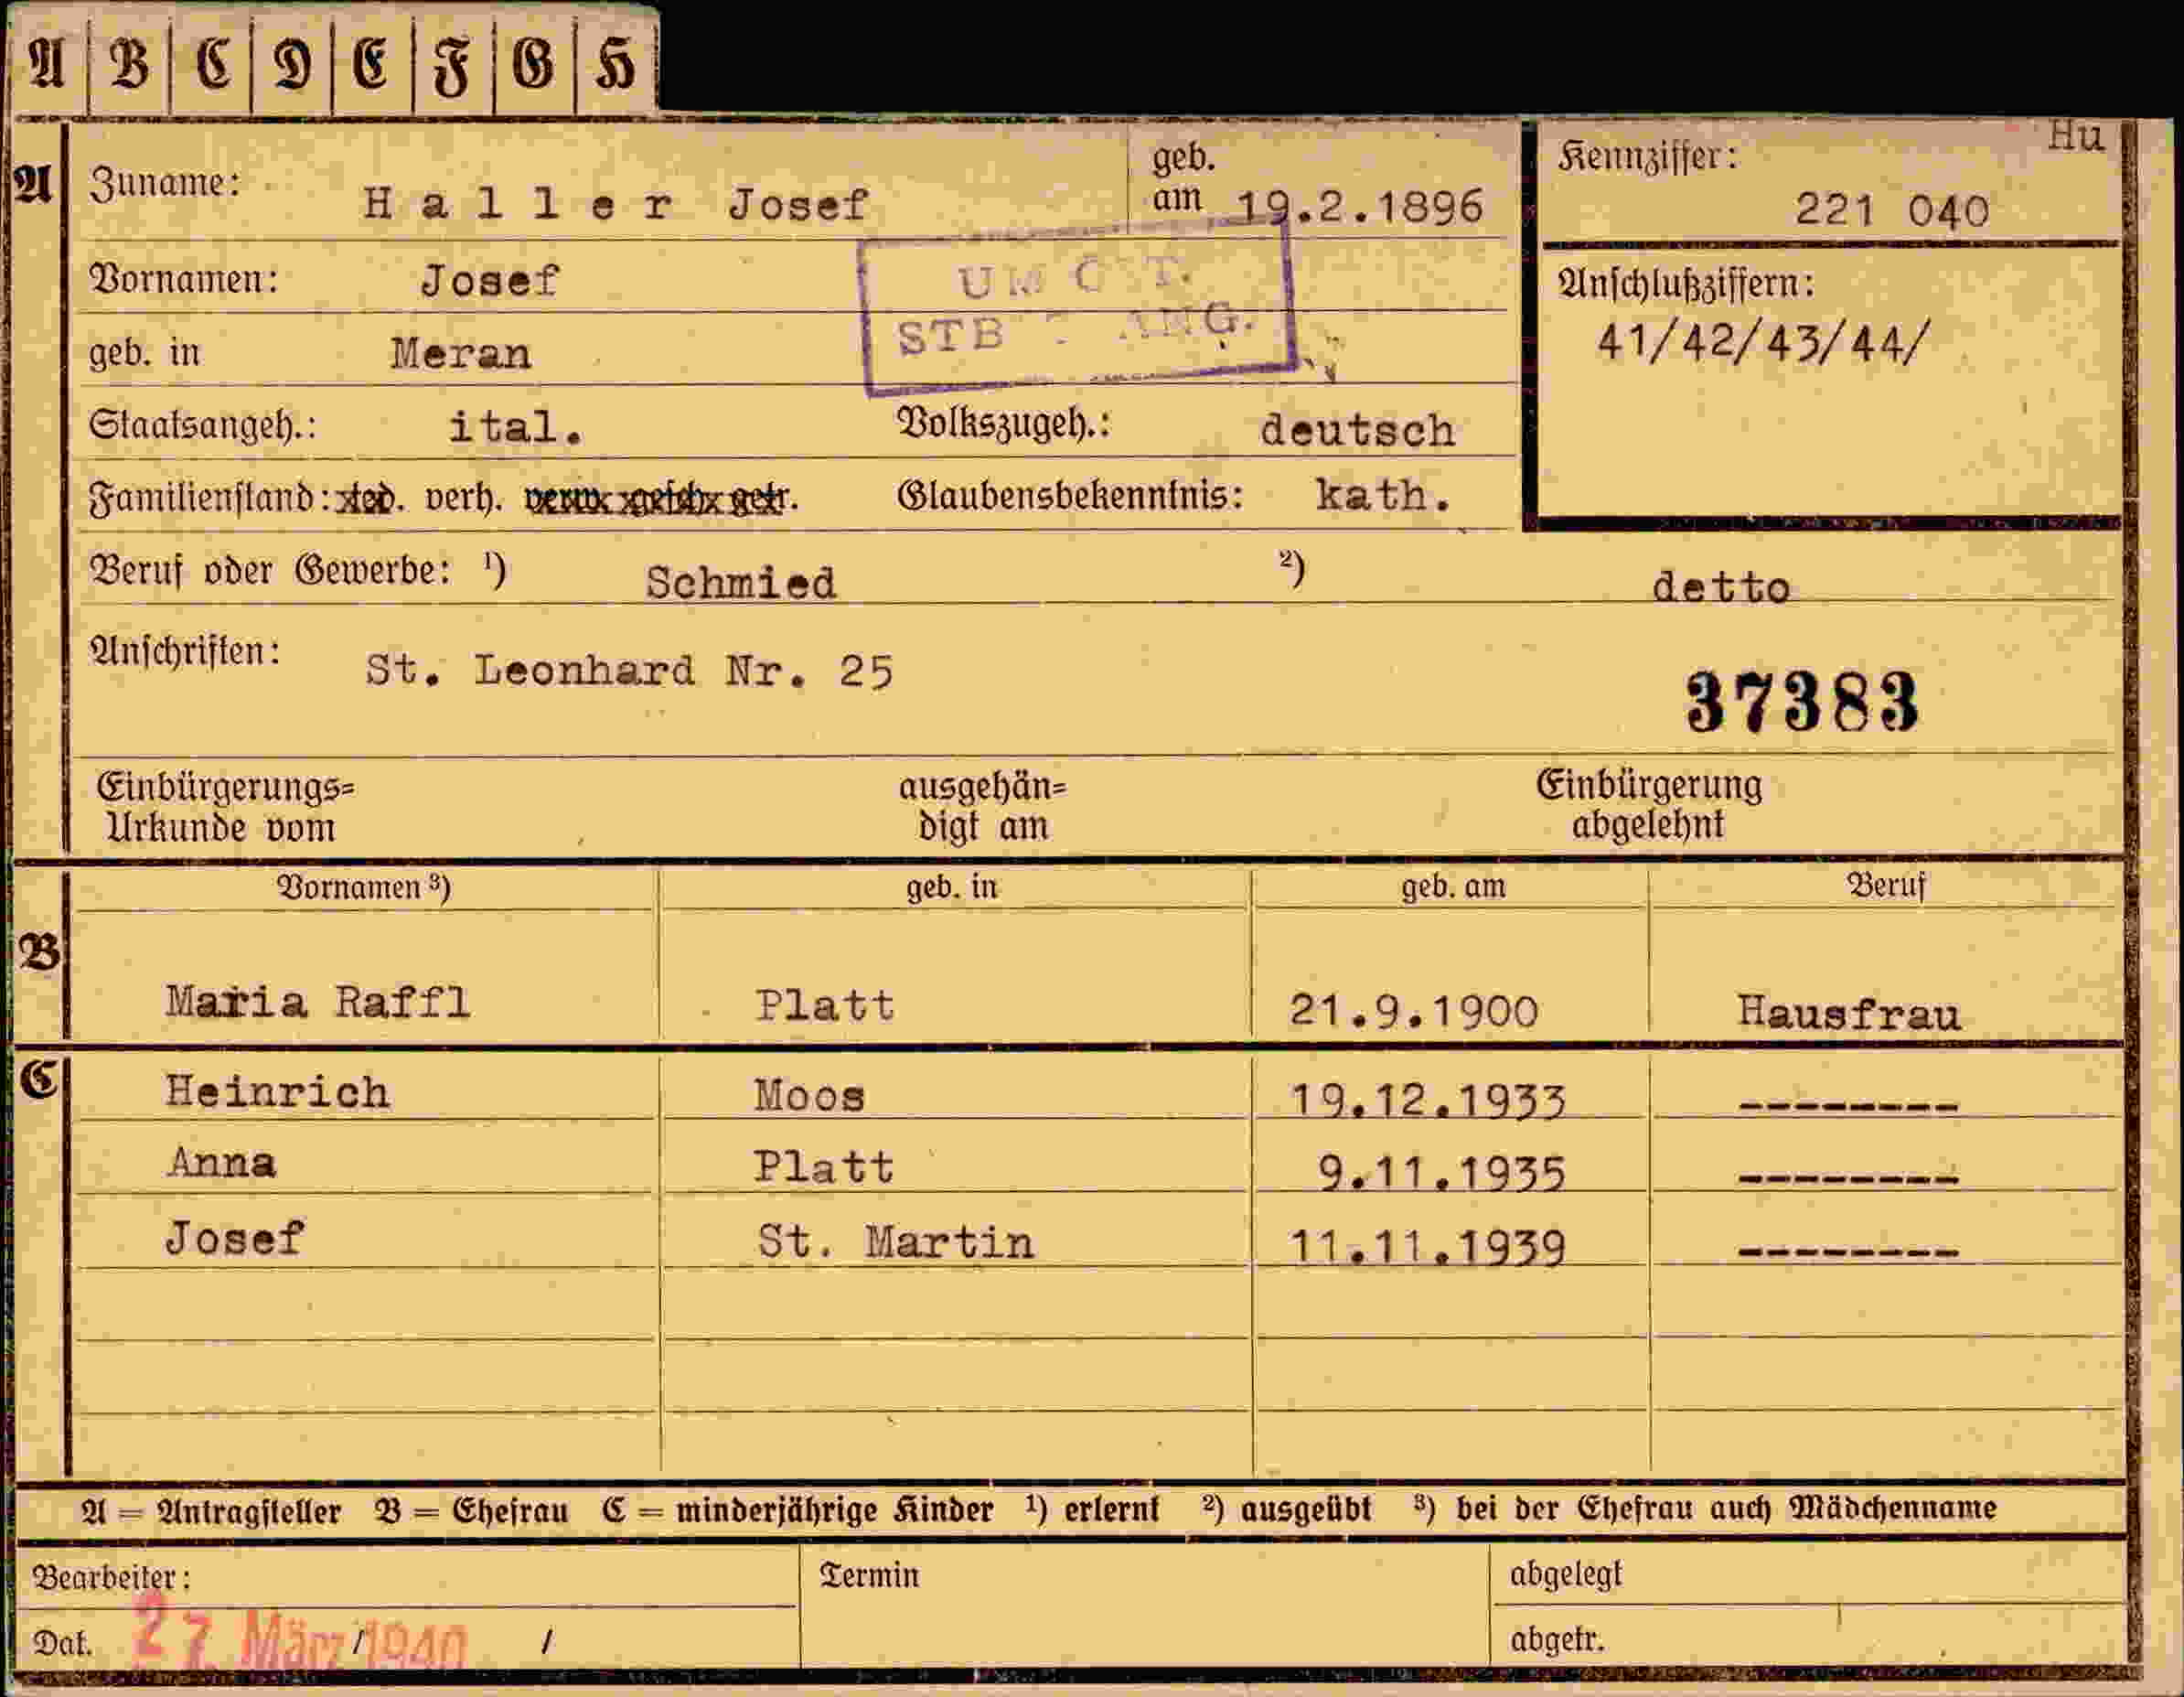 A B C D E F G H
Hu
A Zuname: Haller Josef geb. am 19.2.1896 Kennziffer: 221 040
Vornamen: Josef
UM
STB
geb. in Meran
Anschlußziffern: 41/42/43/44/
Staatsangeh.: ital. Volkszugeh.: deutsch
Familienstand: led. verh. verw. gesch. getr. Glaubensbekenntnis: kath.
Beruf oder Gewerbe: ¹) Schmied ²) detto
Anschriften: St. Leonhard Nr. 25
37383
Einbürgerungs= ausgehän= Einbürgerung
Urkunde vom digt am abgelehnt
Vornamen ³) geb. in geb. am Beruf
B
Maria Raffl Platt 21.9.1900 Hausfrau
C Heinrich Moos 19.12.1933 --------
Anna Platt 9.11.1935 --------
Josef St. Martin 11.11.1939 --------
A = Antragsteller B = Ehefrau C = minderjährige Kinder ¹) erlernt ²) ausgeübt ³) bei der Ehefrau auch Mädchenname
Bearbeiter: Termin abgelegt
Dat. 27. März 1940 / / abgetr.